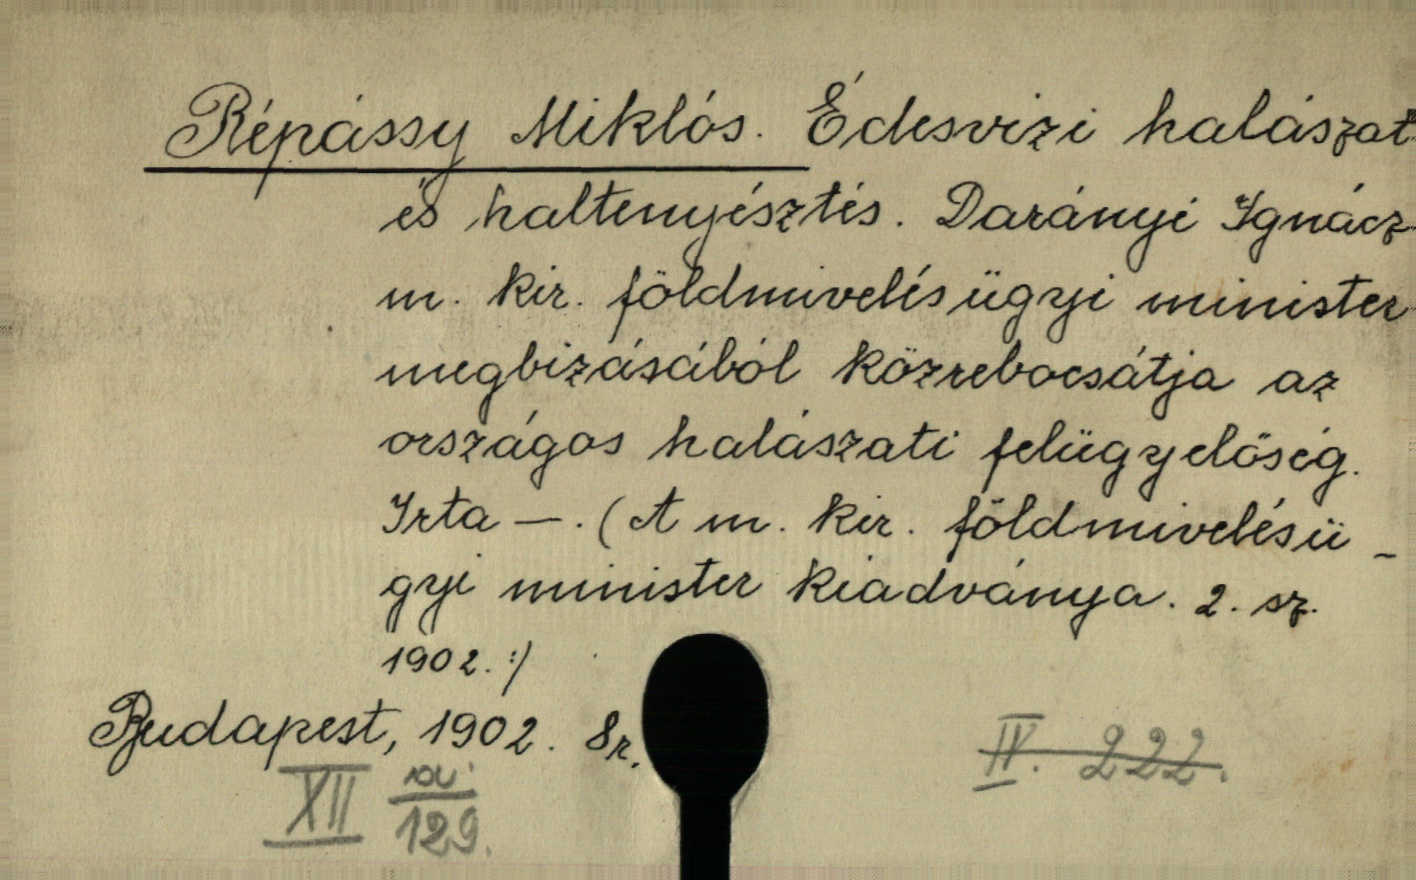 Répássy Miklós. Édesvizi halászat
és haltenyésztés. Darányi Ignácz
m. kir. földmivelésügyi minister
megbizásából közrebocsátja az
országos halászati felügyelőség.
Irta —. (A m. kir. földmivelésü-
gyi minister kiadványa. 2. sz.
1902. :/)
Budapest, 1902. 8r.
IV. 222.
XII
129.